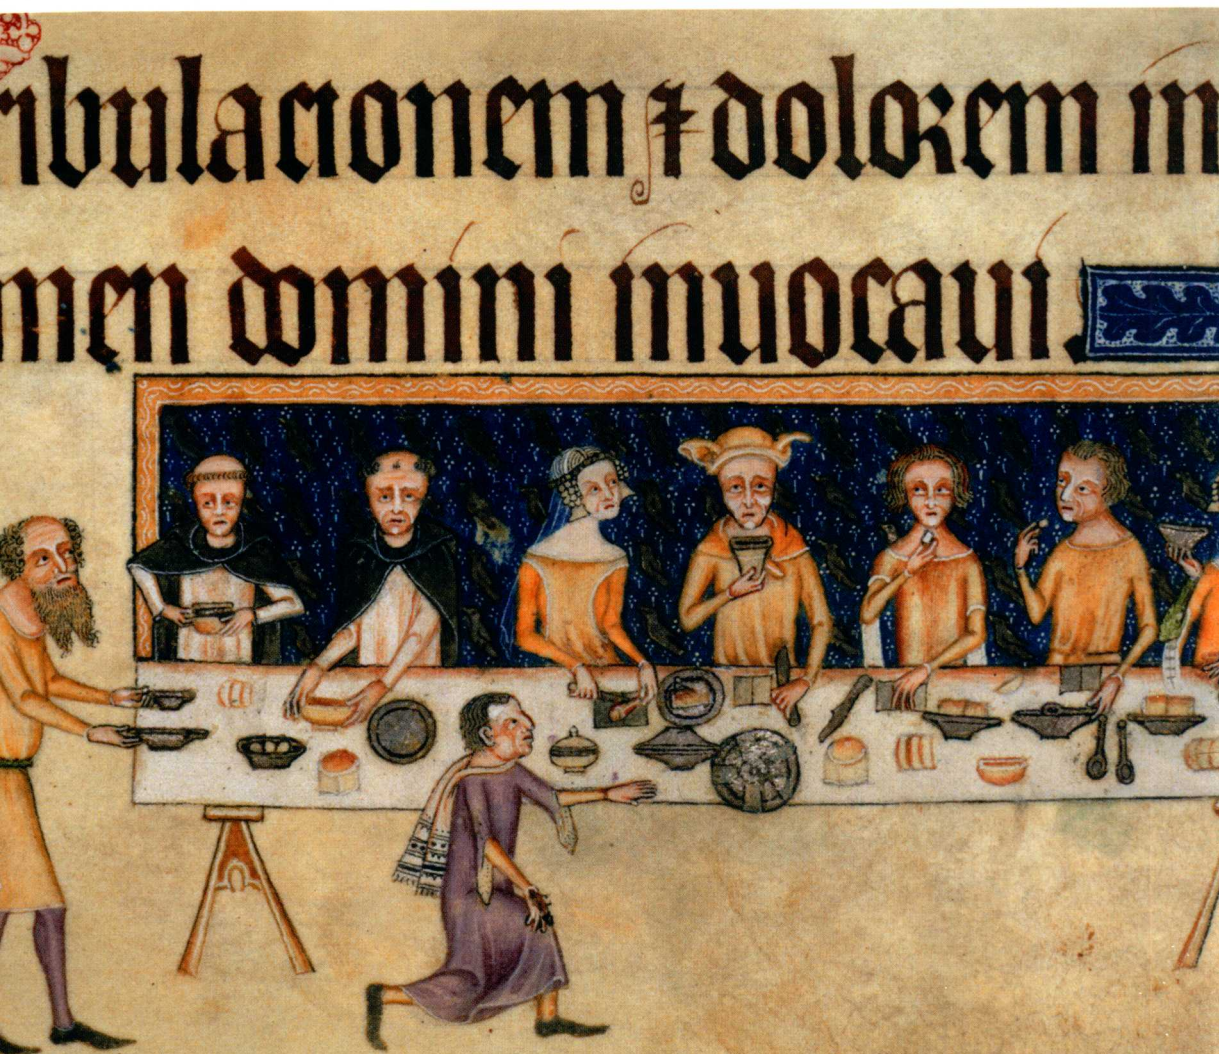 ribulacionem ⁊ dolorem in
men domini inuocaui